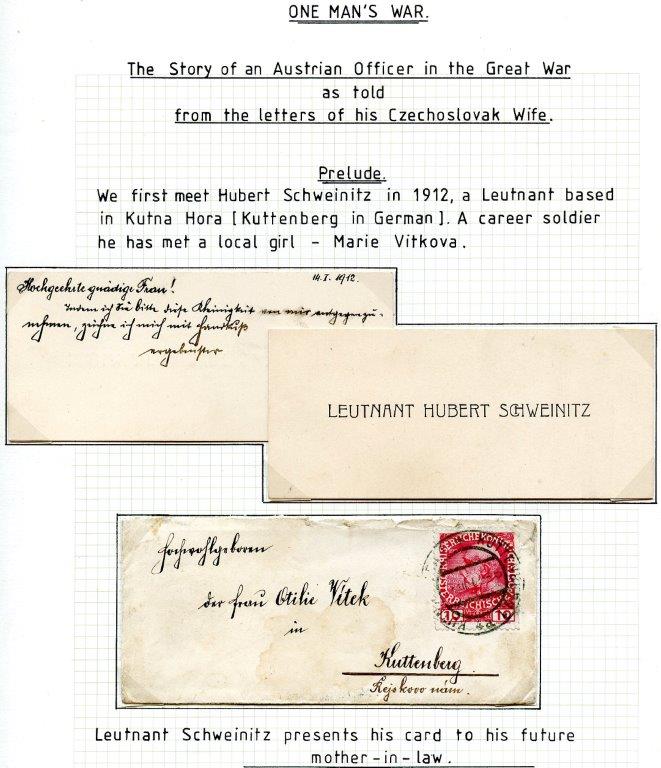 ONE MAN'S WAR.
The Story of an Austrian Officer in the Great War
as told
from the letters of his Czechoslovak Wife.
Prelude.
We first meet Hubert Schweinitz in 1912, a Leutnant based
in Kutna Hora [Kuttenberg in German]. A career soldier
he has met a local girl - Marie Vitkova.
14.I.1912.
Hochgeehrte gnädige Frau!
Indem ich Sie bitte diese Kleinigkeit von mir entgegenzu-
nehmen, zeichne ich mich mit Handkuß
ergebenster
LEUTNANT HUBERT SCHWEINITZ
Hochwohlgeboren
der Frau Otilie Vitek
in
Kuttenberg
Rejskovo nám.
10 10
Leutnant Schweinitz presents his card to his future
mother-in-law.